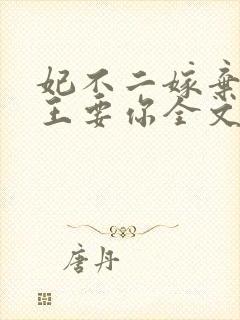 妃不二嫁弃
王要你全文
唐丹